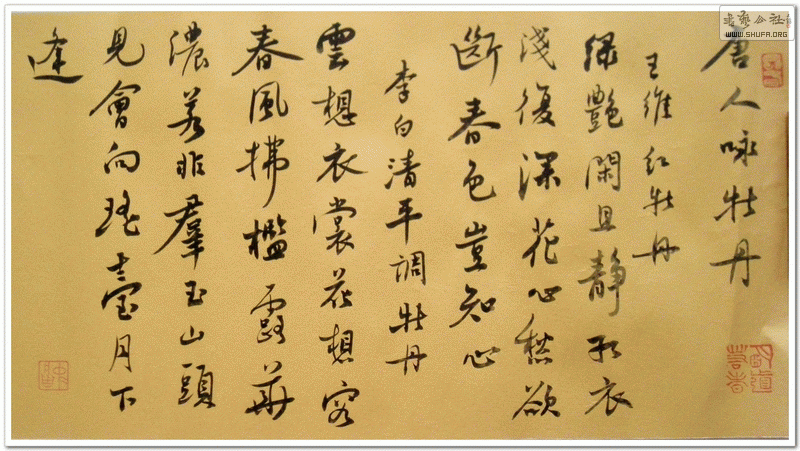 唐人咏牡丹
王維红牡丹
緑艷閑且靜红衣
淺復深花心愁欲
斷春色豈知心
李白清平調牡丹
雲想衣裳花想容
春風拂檻露華
濃若非羣玉山頭
見會向瑤臺月下
逢
书艺公社
WWW.SHUFA.ORG